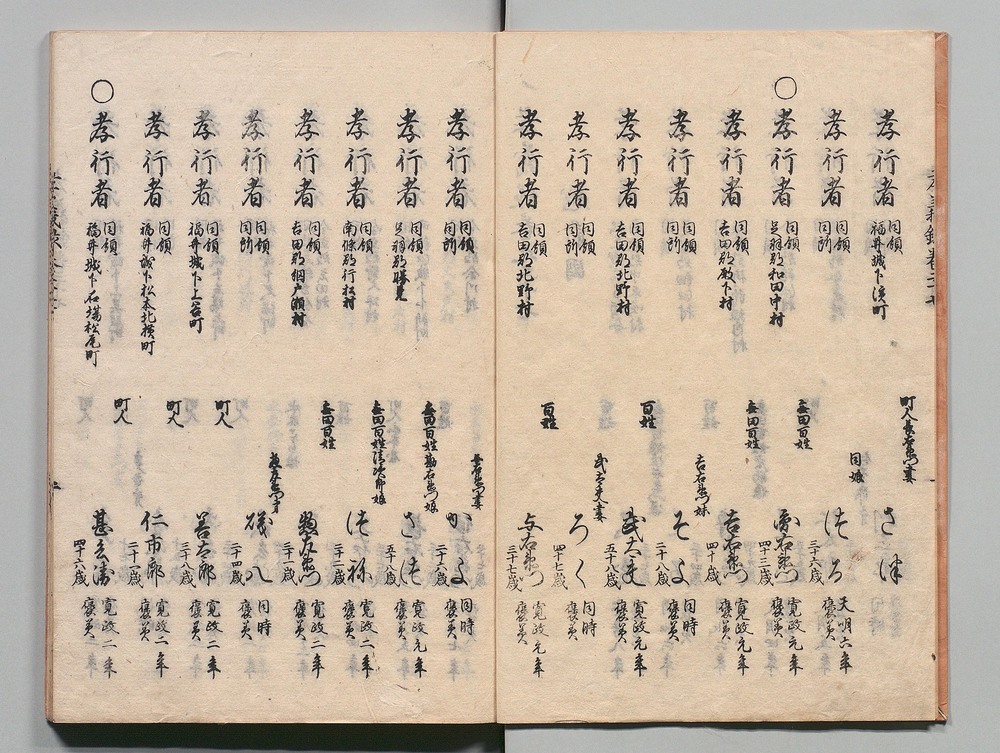 孝行者 同領 福井城下浜町 町人長右衛門妻 さ
孝行者 同領 同所 同娘 ろ 三十六歳 天明六年 褒美
〇孝行者 同領 足羽郡和田中村 無田百姓 四十三歳 寛政元年 褒美
孝行者 同領 吉田郡殿下村 無田百姓 吉右衛門 四十歳 寛政元年 褒美
孝行者 同領 同所 吉右衛門妹 そよ 二十八歳 同時 褒美
孝行者 同領 吉田郡北野村 百姓 武太夫 五十八歳 寛政元年 褒美
孝行者 同領 同所 武太夫妻 ろく 四十七歳 同時 褒美
孝行者 同領 吉田郡北野村 百姓 与右衛門 三十七歳 寛政元年 褒美
孝行者 同領 同所 妻 かよ 二十六歳 同時 褒美
孝行者 同領 足羽郡勝見 無田百姓勘右衛門娘 さ 五十八歳 寛政元年 褒美
孝行者 同領 南條郡行松村 無田百姓清次郎娘 祢 三十二歳 寛政二年 褒美
孝行者 同領 吉田郡網戸瀬村 無田百姓 右衛門 三十一歳 寛政二年 褒美
孝行者 同領 同所 磯八 二十四歳 同時 褒美
孝行者 同領 福井城下上呉町 町人 善太郎 三十八歳 寛政二年 褒美
孝行者 同領 福井城下松本北横町 町人 仁市郎 二十一歳 寛政二年 褒美
〇孝行者 同領 福井城下石場松尾町 町人 甚兵衛 四十六歳 寛政二年 褒美